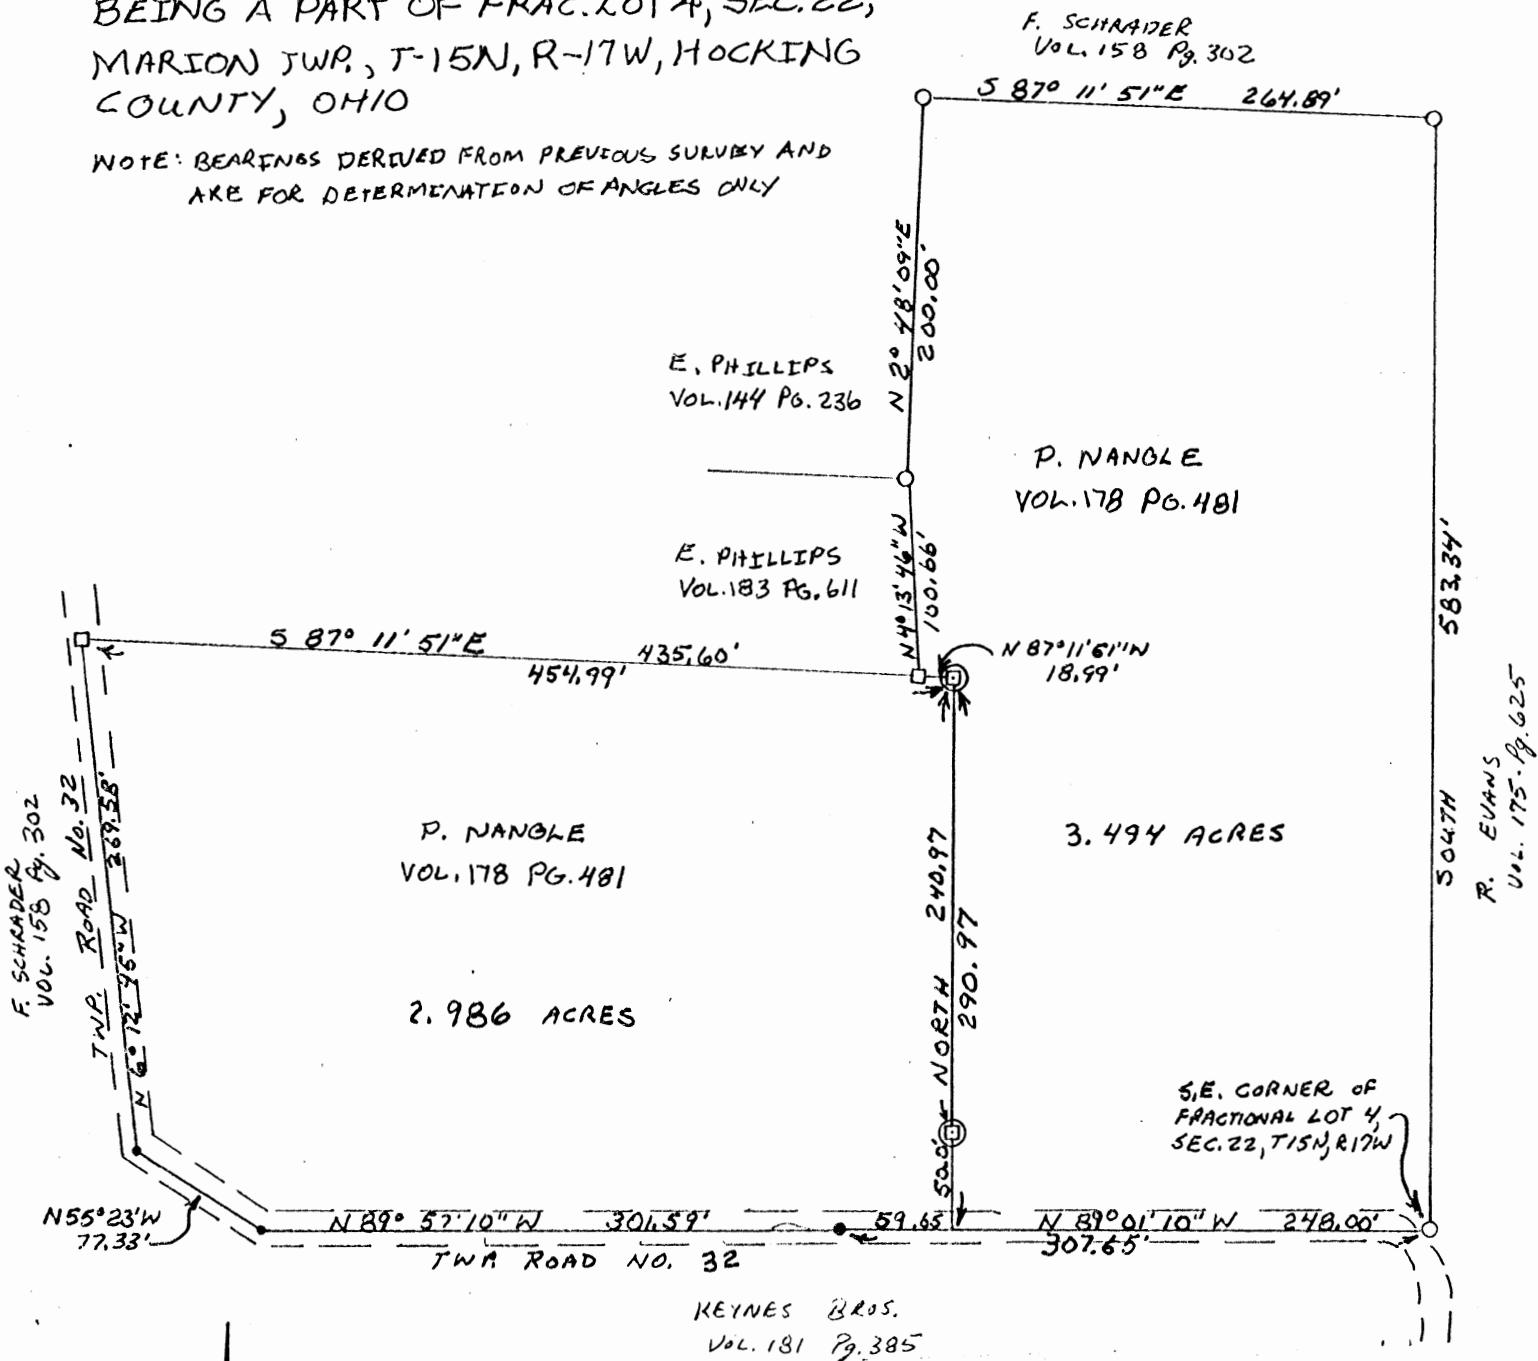 BEING A PART OF FRAC. LOT 4, SEC. 22,
MARION TWP., T-15N, R-17W, HOCKING
COUNTY, OHIO
NOTE: BEARINGS DERIVED FROM PREVIOUS SURVEY AND
ARE FOR DETERMINATION OF ANGLES ONLY
F. SCHRADER
VOL. 158 Pg. 302
S 87° 11' 51" E 264.89'
N 2° 48' 09" E
200.00'
E. PHILLIPS
VOL. 144 PG. 236
P. NANGLE
VOL. 178 PG. 481
N 4° 13' 46" W
100.66'
E. PHILLIPS
VOL. 183 PG. 611
583.34'
SOUTH
R. EVANS
VOL. 175 - Pg. 625
S 87° 11' 51" E 435.60'
454.99'
N 87° 11' 51" W
18.99'
F. SCHRADER
VOL. 158 Pg. 302
TWP. ROAD No. 32
N 6° 12' 45" W 269.58'
P. NANGLE
VOL. 178 PG. 481
2.986 ACRES
3.494 ACRES
50.0' NORTH 240.97
290.97
S.E. CORNER OF
FRACTIONAL LOT 4,
SEC. 22, T15N, R17W
N 55° 23' W
77.33'
N 89° 57' 10" W 301.59' 59.65' N 89° 01' 10" W 248.00'
307.65'
TWP. ROAD NO. 32
KEYNES BROS.
VOL. 181 Pg. 385